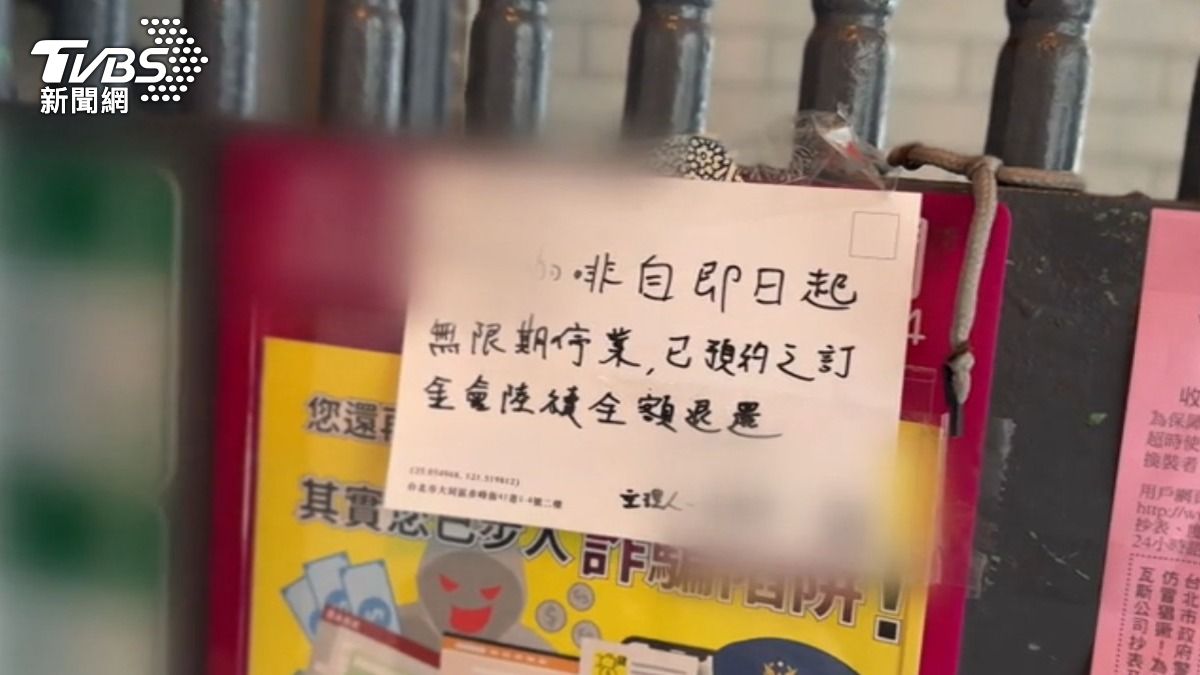 TVBS
新聞網
啡自即日起
無限期停業,已預約之訂
金會陸續全額退還
(25.054968, 121.519812)
台北市大同區赤峰街
號二樓
主理人
4
您還
其實您已步入詐騙陷阱!
收
為保障
超時使
換裝者
用戶網
http://w
抄表、
24小時
台北市政府警
仿冒猖獗!為
瓦斯公司抄表